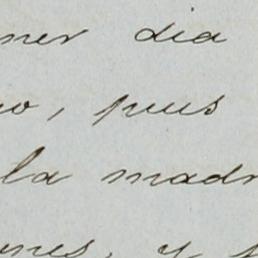 mer dia
o, pues
la madr
ones, y